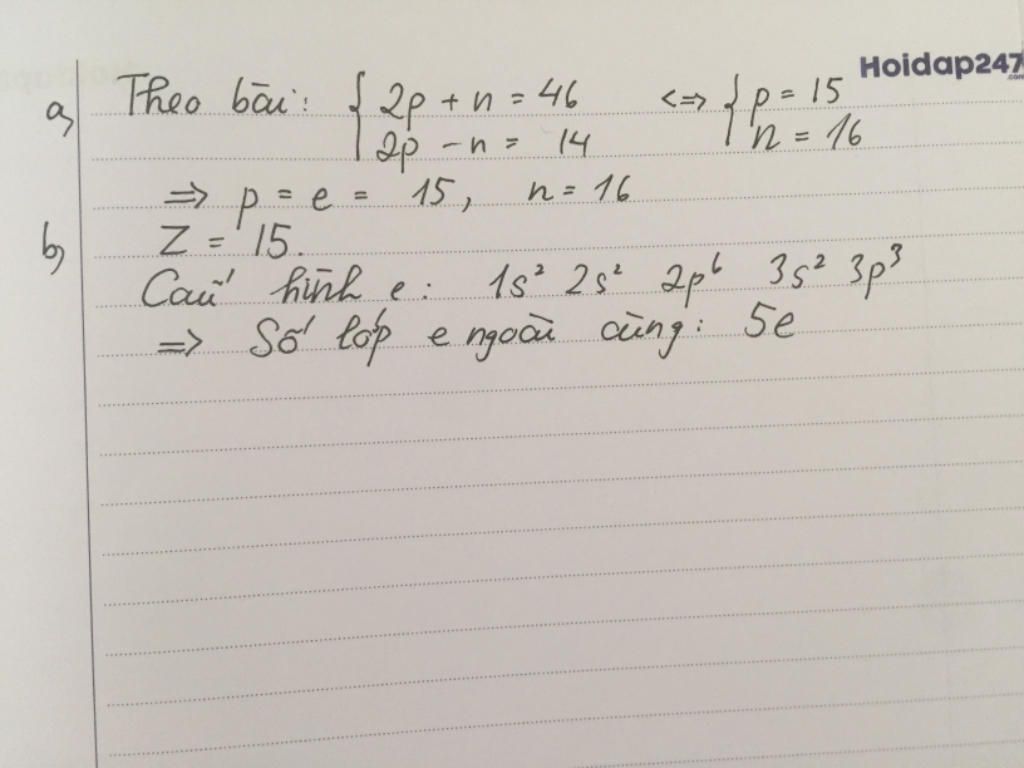 Hoidap247.com
a) Theo bài: { 2p + n = 46 <=> { p = 15
2p - n = 14 n = 16
=> p = e = 15, n = 16
b) Z = 15.
Cấu hình e: 1s² 2s² 2p⁶ 3s² 3p³
=> Số lớp e ngoài cùng: 5e